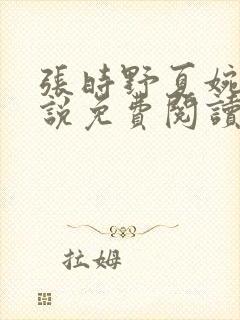 張時野夏婉
說免費閱讀
拉姆